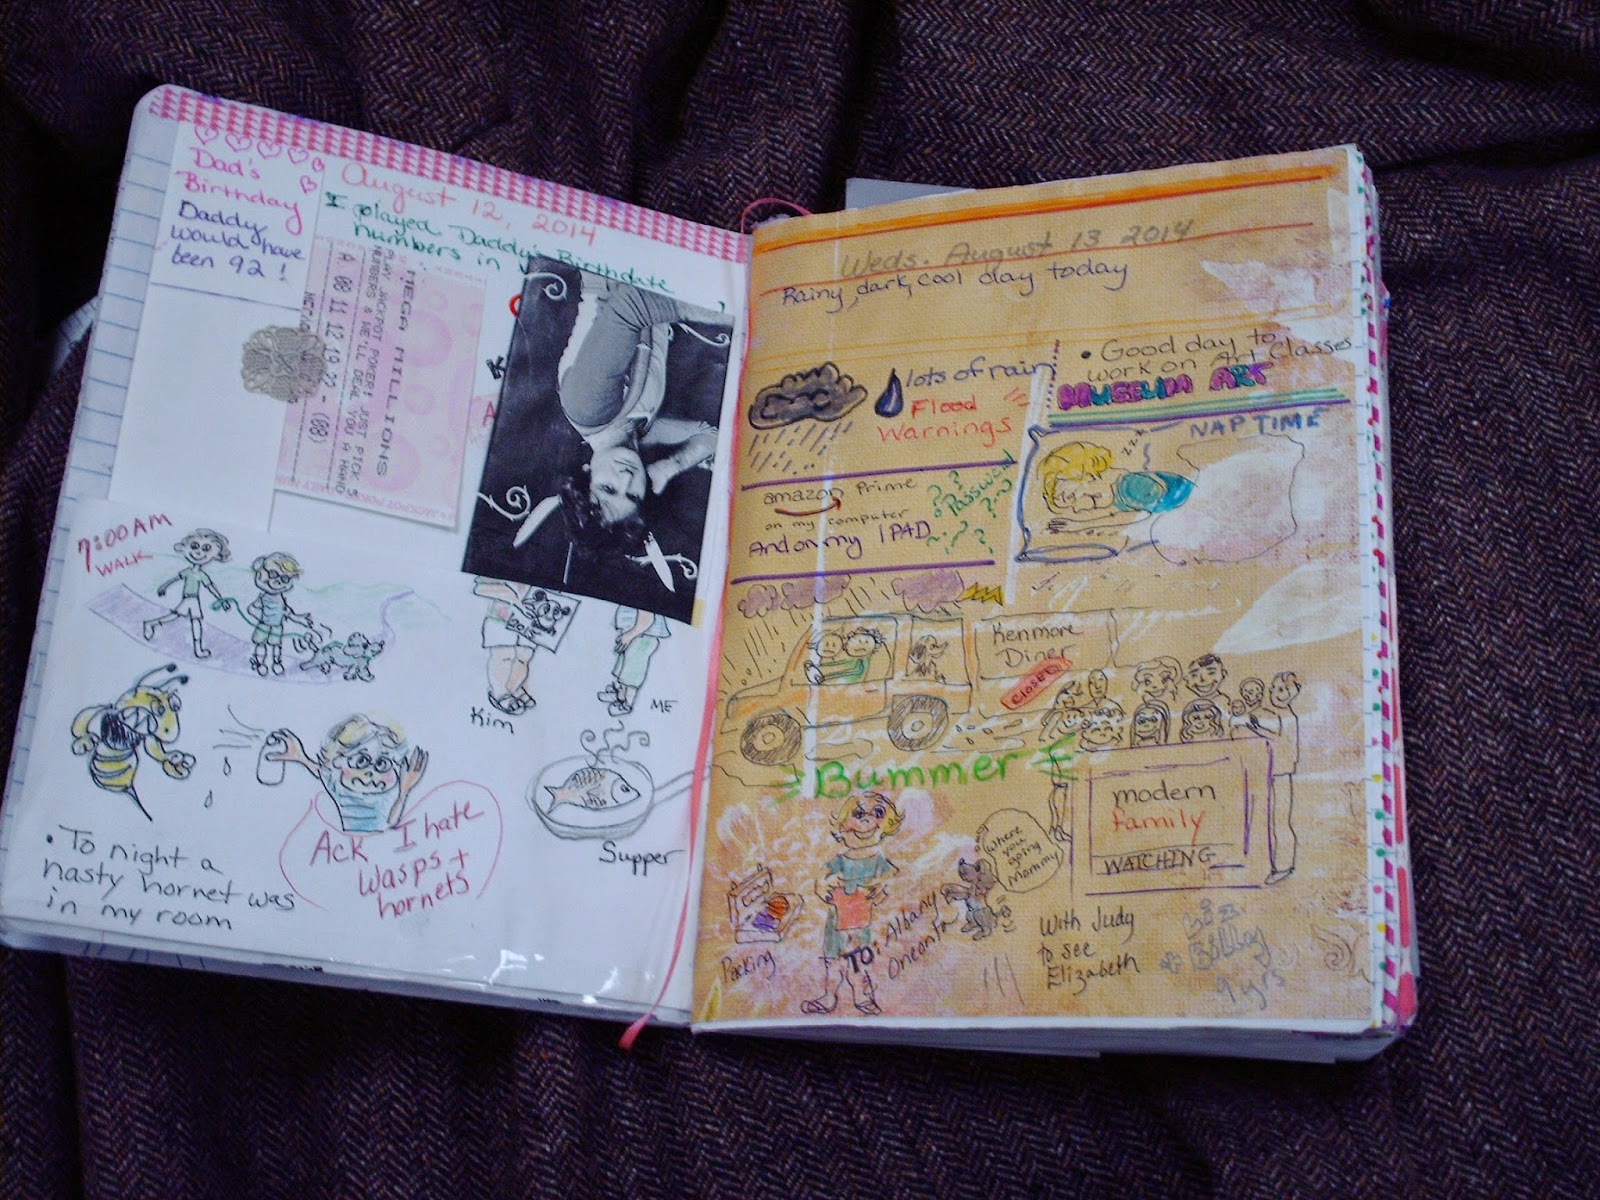 Dad's
Birthday
Daddy
would have
been 92!
August 12, 2014
I played Daddy's Birthdate
numbers in
MEGA MILLIONS
PLAY JACKPOT POKER! JUST PICK 5
NUMBERS & WE'LL DEAL YOU A HAND
7:00 AM
WALK
2015
Kim
ME
Supper
Ack I hate
Wasps +
hornets
• To night a
nasty hornet was
in my room
Weds. August 13 2014
Rainy, dark, cool day today
lots of rain
Flood
Warnings
• Good day to
work on Art Classes
MUSEUM ART
NAP TIME
zzz
amazon Prime
on my computer
And on my IPAD
? ?
Password
? ?
Kenmore
Diner
CLOSED
Bummer
modern
family
WATCHING
where
you
going
Mommy
Packing
TO: Albany
Oneonta
With Judy
to see
Elizabeth
Liz
+ Billy
9 yrs